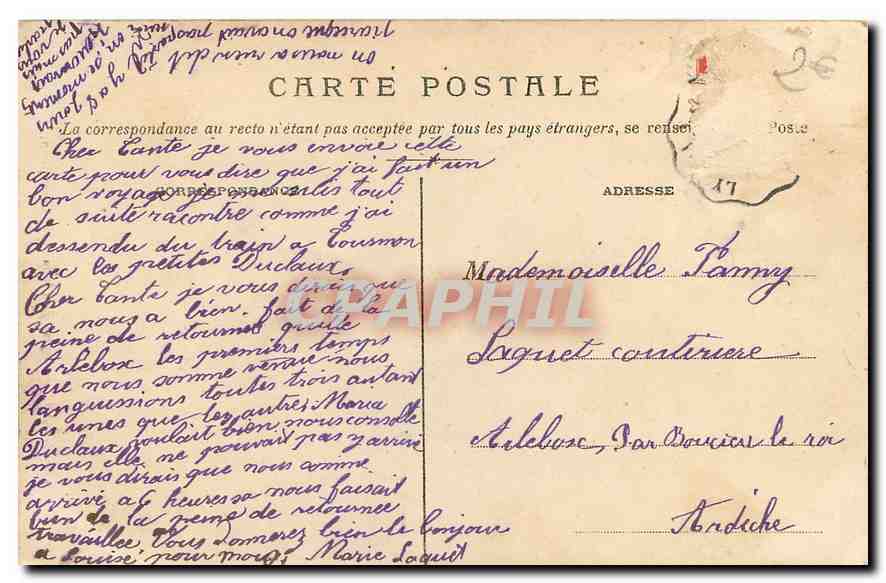 on nous a rien dit
parsceque on avait
CARTE POSTALE
2€
La correspondance au recto n'étant pas acceptée par tous les pays étrangers, se rensei Poste
CORRESPONDANCE
ADRESSE
LY
Cher Tante je vous envoie cette
carte pour vous dire que j'ai fait un
bon voyage je suis tout
de suite racontre comme j'ai
dessendu du train a Tournon
avec les petites Duclaux,
Cher Tante je vous dirais que
sa nous a bien fait de la
peine de retournes quite
Arlebox les premiers temps
que nous somme venue nous
languissions toutes trois autant
les unes que les autres Maria
Duclaux voulait bien nous consolle
mais elle ne pouvait pas y arrive
je vous dirais que nous somme
arrivé a 6 heures sa nous faisait
bien de la peine de retournee
travaillee Vous donnerez bien le bonjour
a Louise pour moi Marie Laquet
Mademoiselle Fanny
Laquet couturiere
Arlebosc, Par Boucieu le roi
Ardèche
CPAPHIL